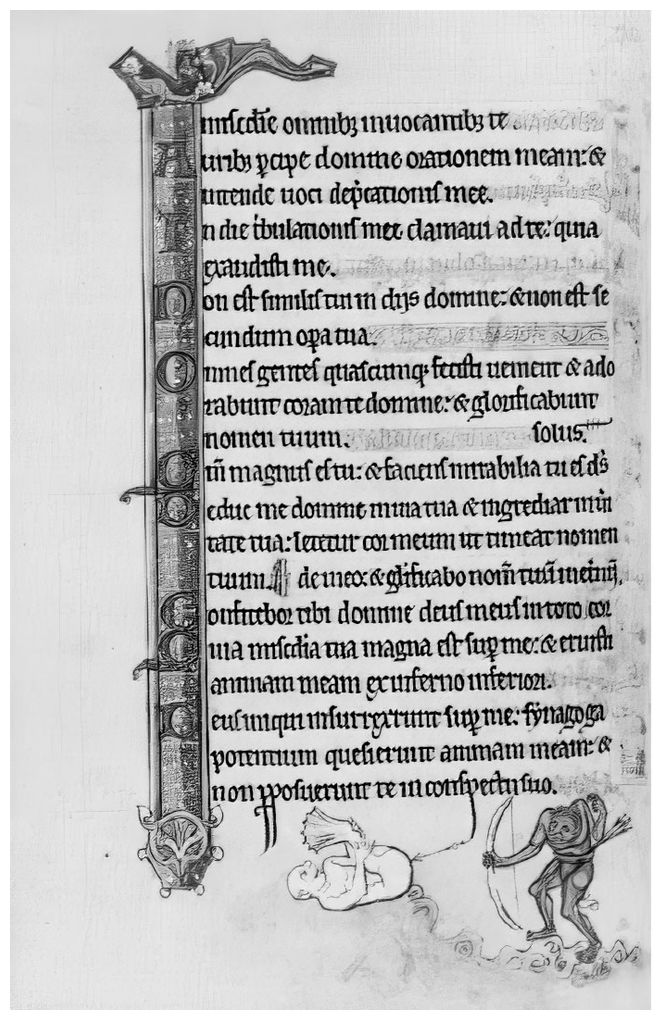 misc̄die omnibꝫ inuocantibꝫ te.
Auribꝫ ꝑcipe domine orationem meam: &
intende uoci dep̄cationis mee.
In die tribulationis mee clamaui ad te: quia
exaudisti me.
Non est similis tui in diis domine: & non est se
cundum opa tua.
Omnes gentes quascumqꝫ fecisti uenient & ado
rabunt coram te domine: & glorificabunt
nomen tuum. solus.
Qm̄ magnus es tu: & faciens mirabilia tu es ds̄
Deduc me domine in uia tua & ingrediar in
tate tua: letetur cor meum ut timeat nomen
tuum
Confitebor tibi domine deus meus in toto cor
Quia misc̄dia tua magna est sup me: & eruisti
animam meam ex inferno inferiori.
Deus iniqui insurrexerunt sup me: synagoga
potentium quesierunt animam meam: &
non ꝓposuerunt te in conspectu suo.